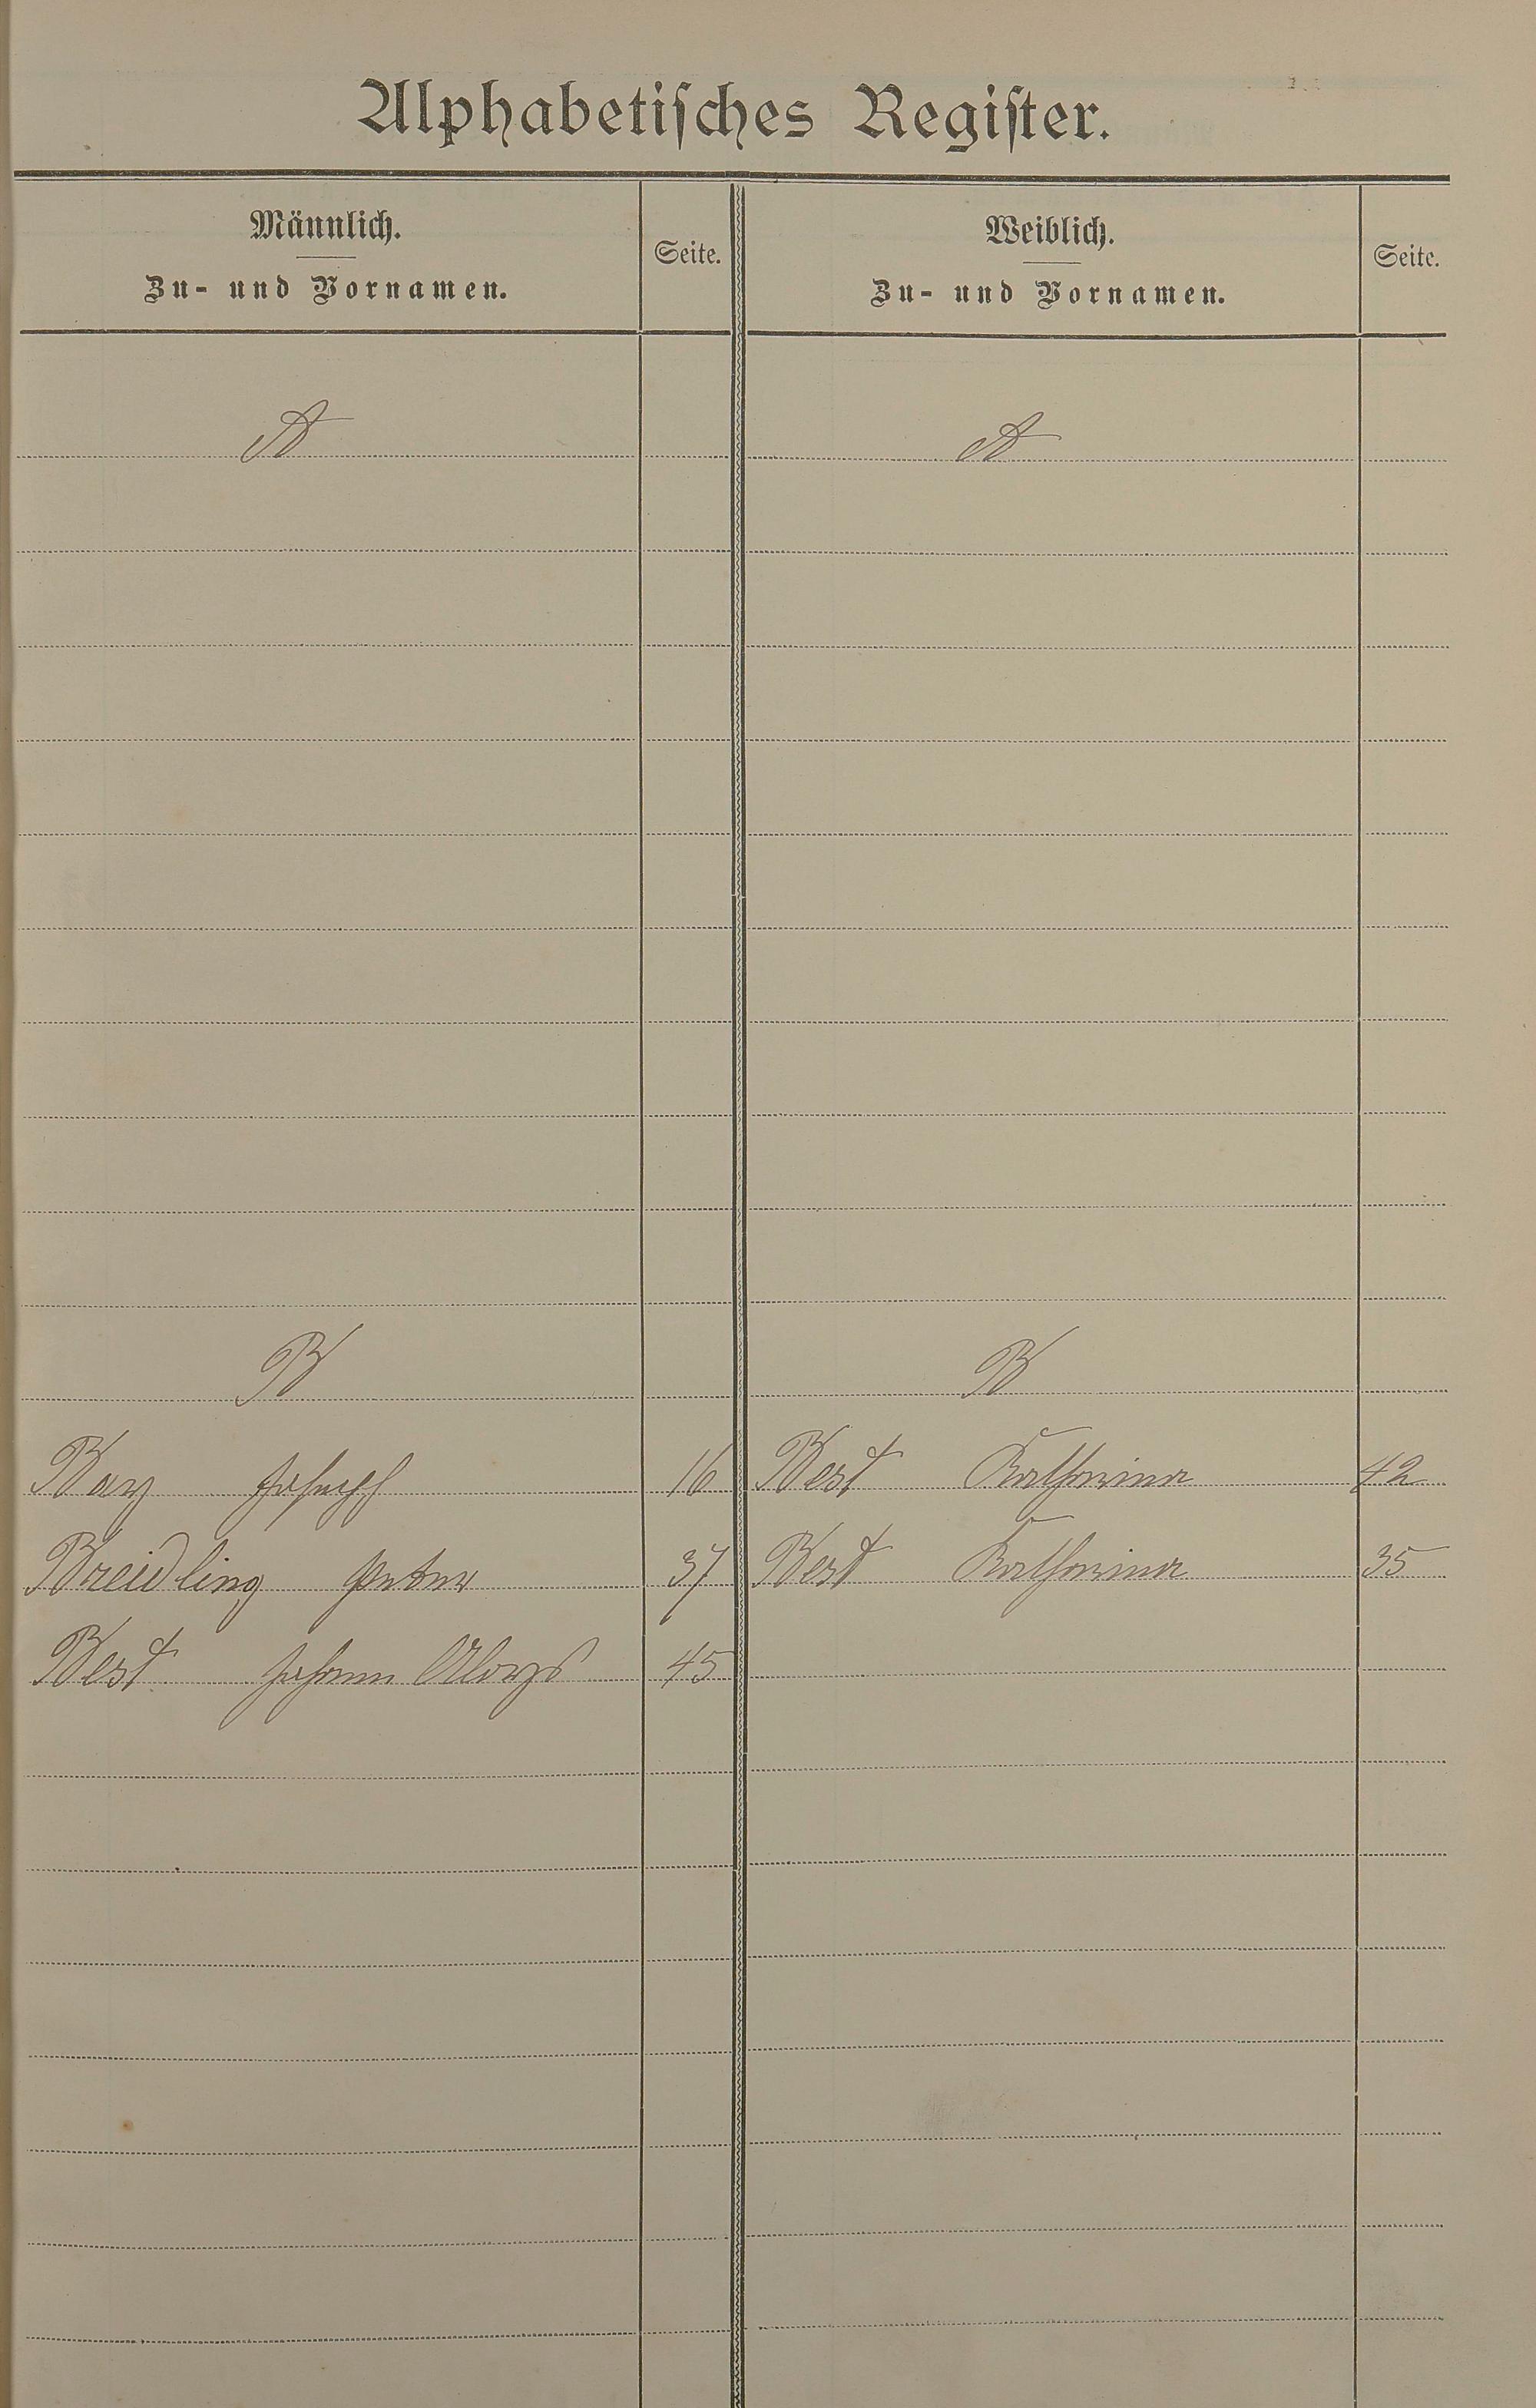 Alphabetisches Register.
Männlich.
Zu- und Vornamen.
Seite.
Weiblich.
Zu- und Vornamen.
Seite.
A
A
B
B
Bay Joseph 16 Best Katharina 42
Breidling Peter 37 Best Katharina 35
Best Johann Aloys 45